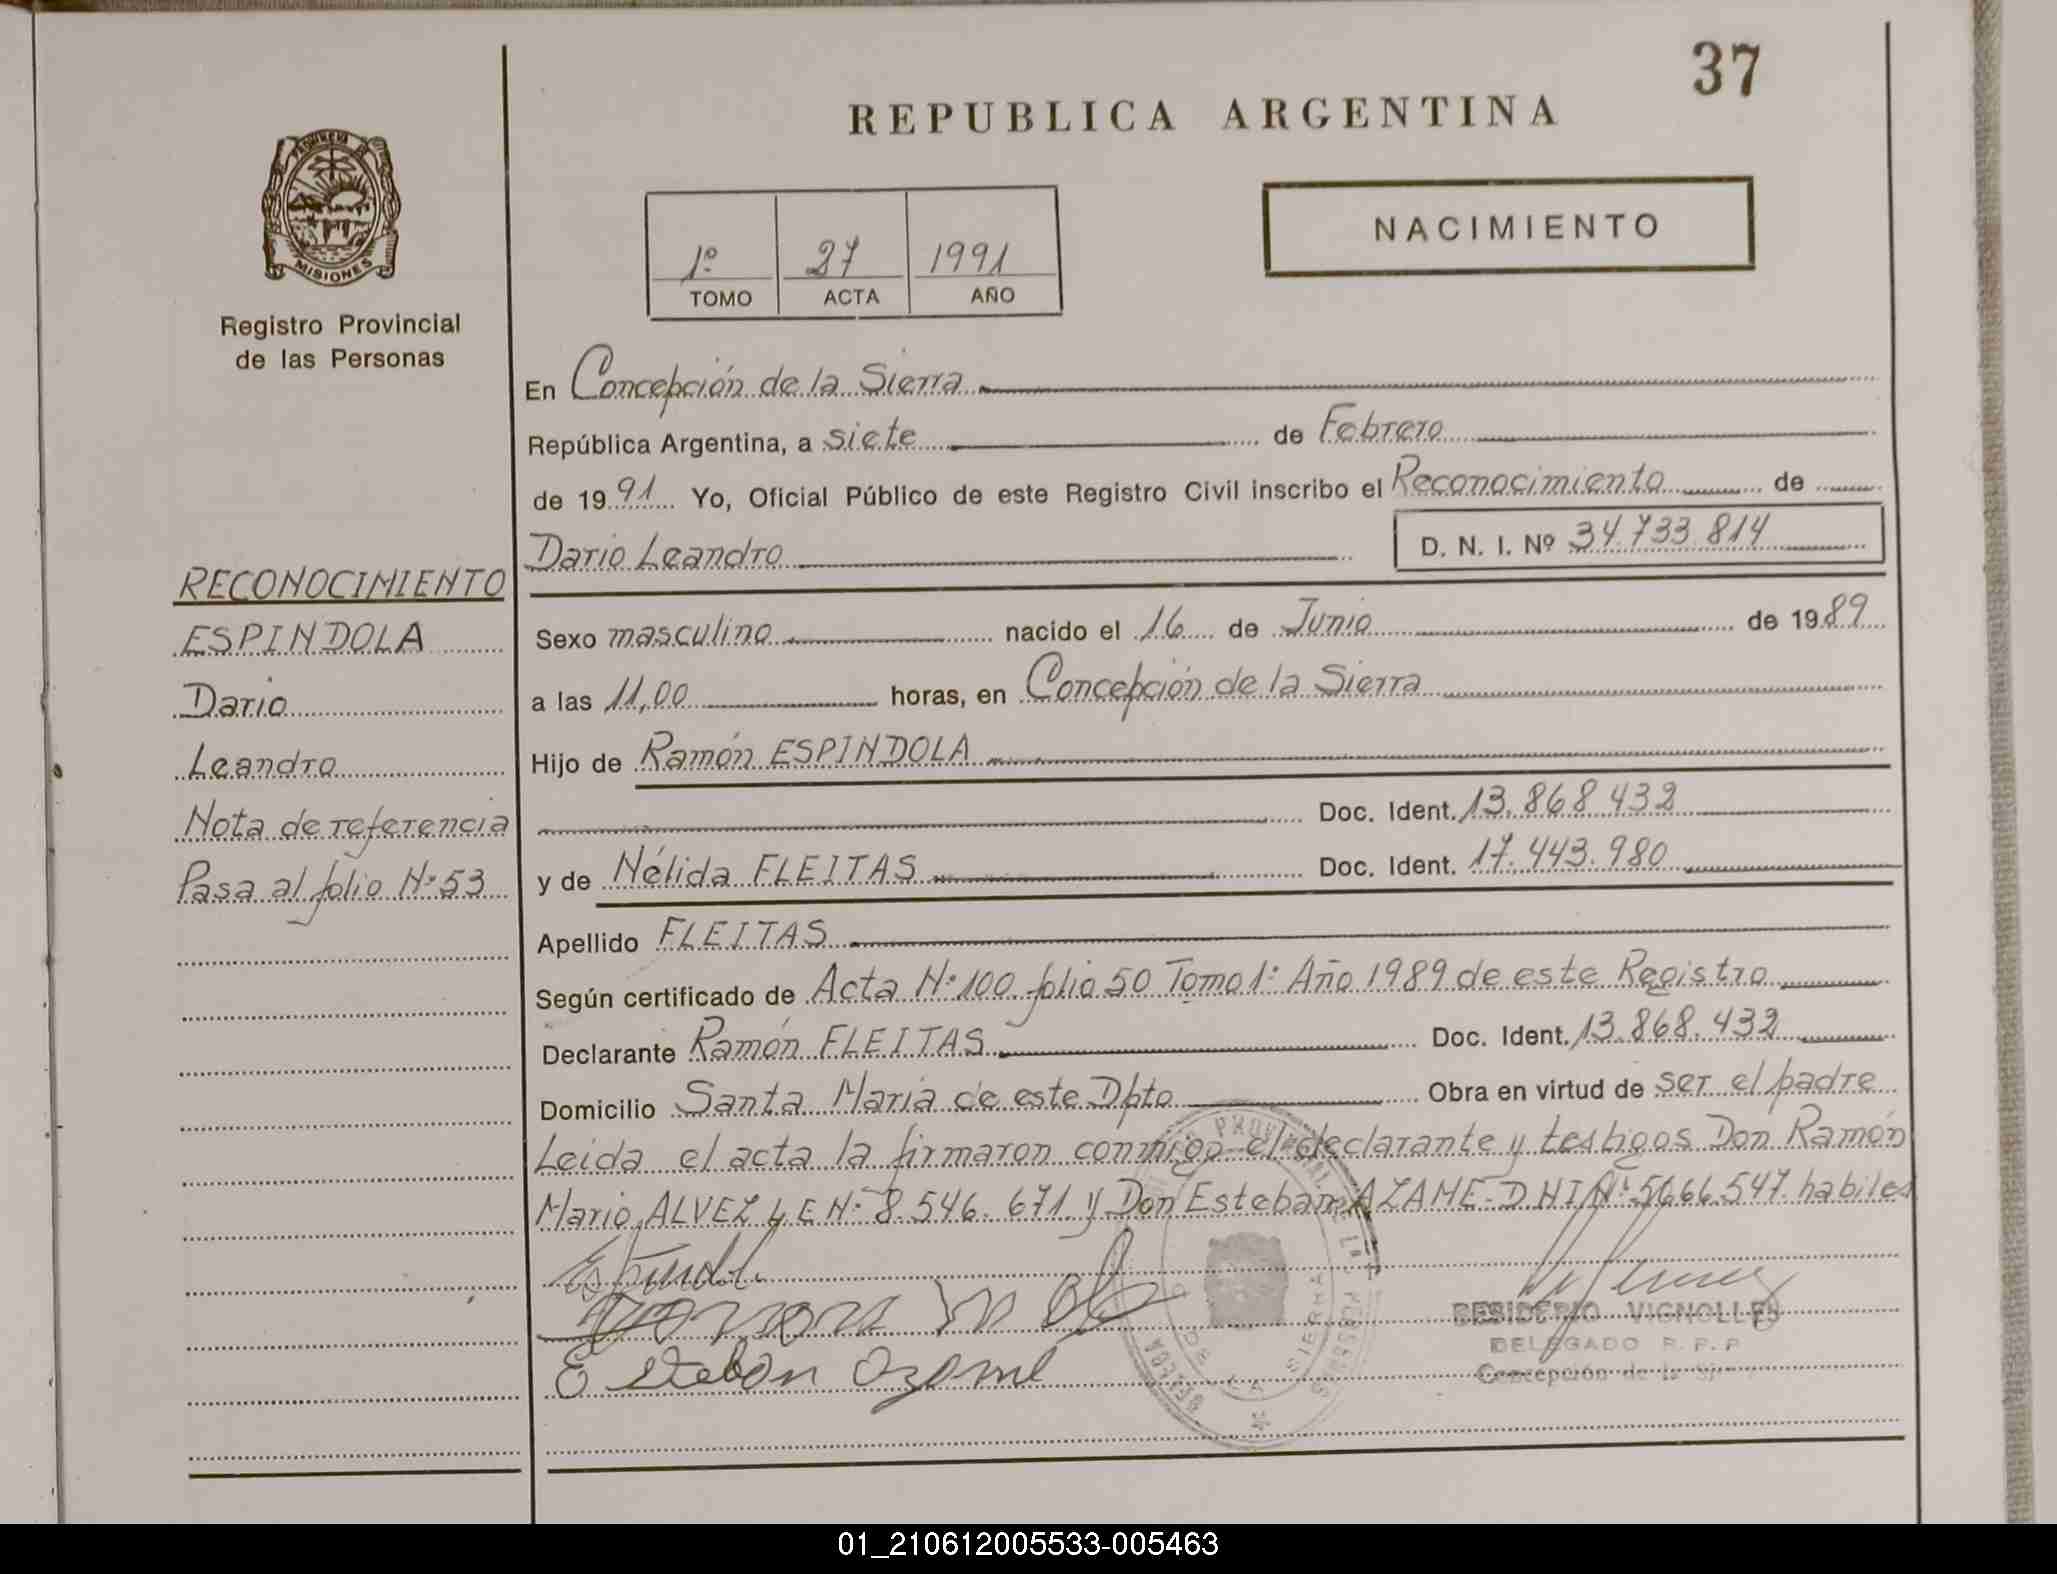 37
REPUBLICA ARGENTINA
PROVINCIA DE
MISIONES
Registro Provincial
de las Personas
1º 27 1991
TOMO ACTA AÑO
NACIMIENTO
En Concepción de la Sierra
República Argentina, a siete de Febrero
de 1991 Yo, Oficial Público de este Registro Civil inscribo el Reconocimiento de
Dario Leandro D. N. I. Nº 34.733.814
RECONOCIMIENTO
ESPINDOLA
Dario
Leandro
Nota de referencia
Pasa al folio Nº 53
Sexo masculino nacido el 16 de Junio de 1989
a las 11,00 horas, en Concepción de la Sierra
Hijo de Ramón ESPINDOLA
Doc. Ident. 13.868.432
y de Nélida FLEITAS Doc. Ident. 17.443.980
Apellido FLEITAS
Según certificado de Acta Nº 100 folio 50 Tomo 1º Año 1989 de este Registro
Declarante Ramón FLEITAS Doc. Ident. 13.868.432
Domicilio Santa Maria de este Dpto Obra en virtud de ser el padre
Leida el acta la firmaron conmigo el declarante y testigos Don Ramón
Mario ALVEZ L E Nº 8.546.671 y Don Esteban AZAME D N I Nº 5.666.547 habiles
Espindola
Esteban Ozame
DESIDERIO VIGNOLLES
DELEGADO R. P. P.
Concepción de la
01_210612005533-005463